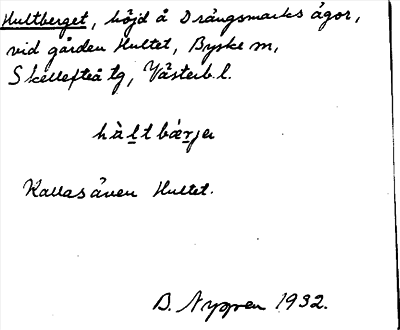 Hultberget, höjd å Drängsmarks ägor,
vid gården Hultet, Byske sn,
Skellefteå tg, Västerb. l.
hàltbærjer
Kallas även Hultet.
B. Nygren 1932.